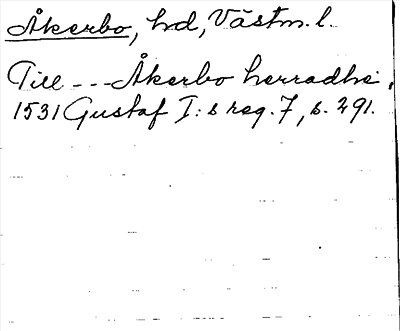 Åkerbo, hd, Västm. l.
Till --- Åkerbo herradhe,
1531 Gustaf I:s reg. 7, s. 291.